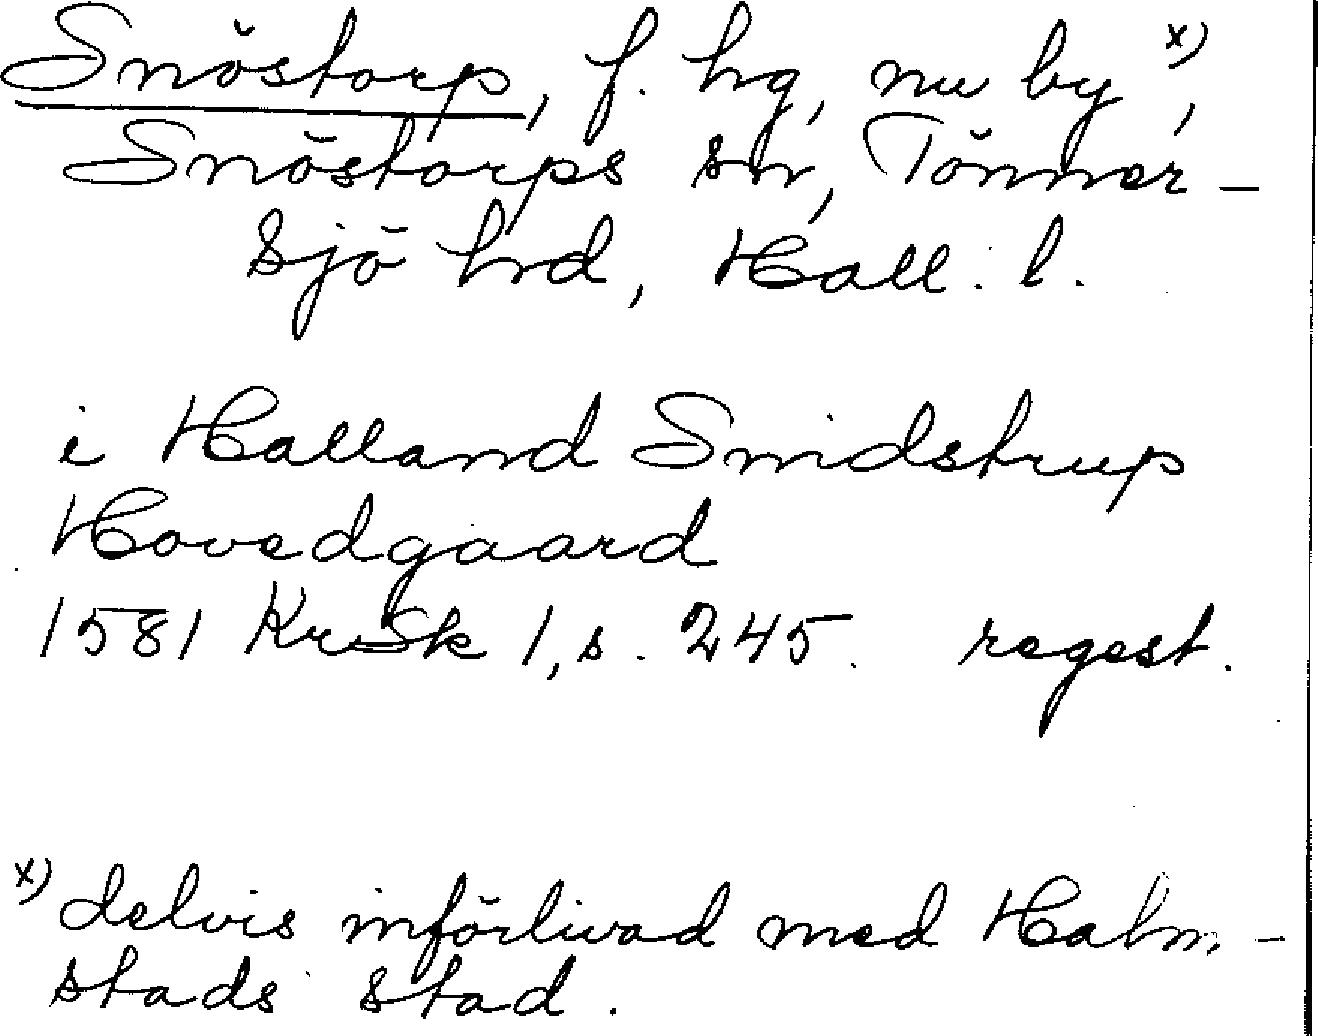 Snöstorp, f. hg, nu by x),
Snöstorps sn, Tönner-
sjö hrd, Hall. l.
i Halland Snidstrup
Hovedgaard
1581 KrSk 1, s. 245. regest.
x) delvis införlivad med Halm-
stads stad.